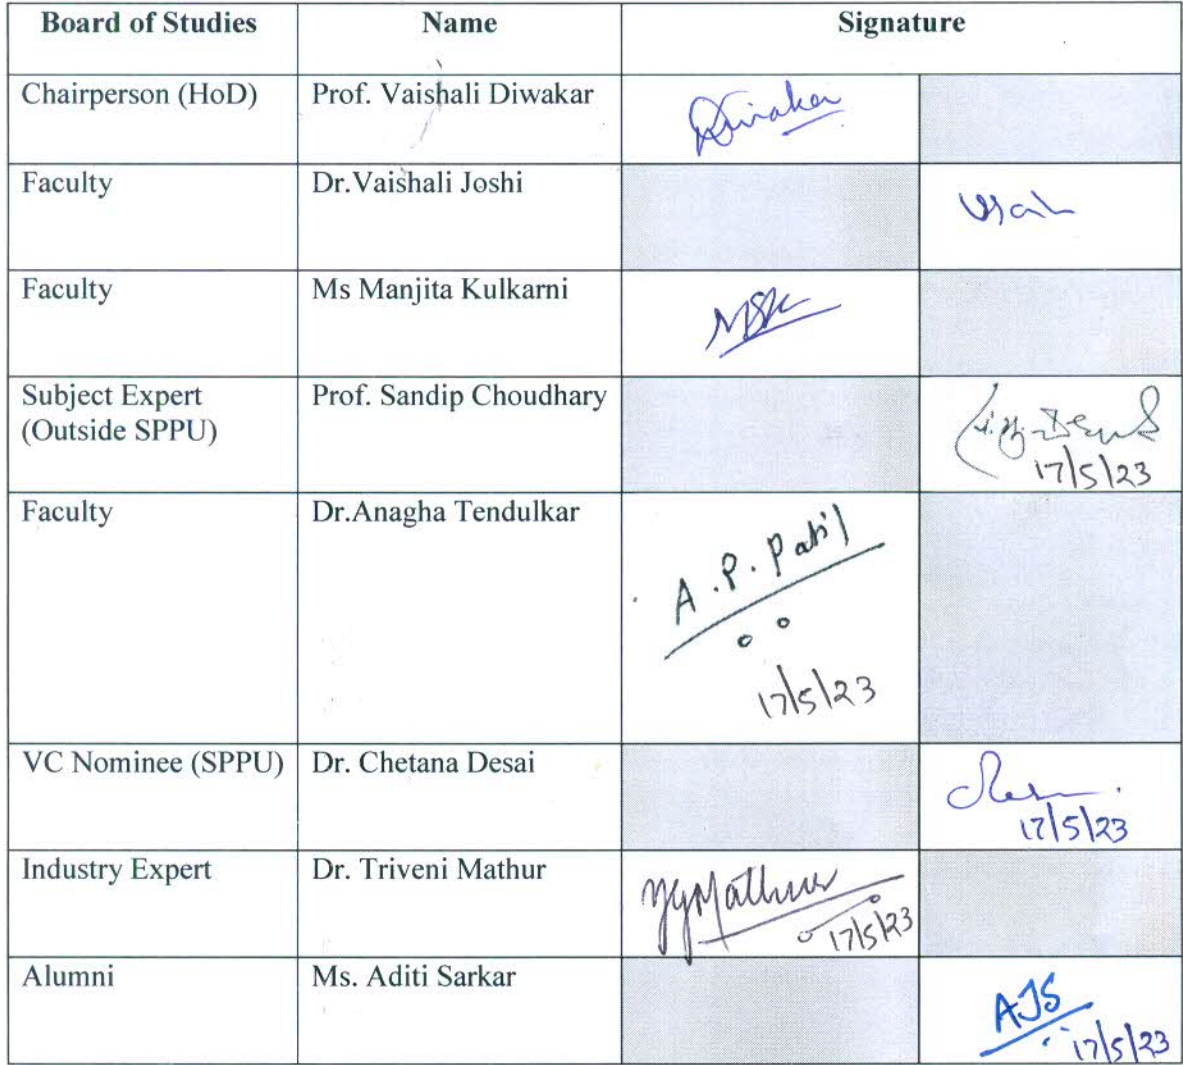 Board of Studies Name Signature
Chairperson (HoD) Prof. Vaishali Diwakar Diwakar
Faculty Dr.Vaishali Joshi
Faculty Ms Manjita Kulkarni MSK
Subject Expert Prof. Sandip Choudhary
(Outside SPPU)
17/5/23
Faculty Dr.Anagha Tendulkar
A.P.Patil
17/5/23
VC Nominee (SPPU) Dr. Chetana Desai
17/5/23
Industry Expert Dr. Triveni Mathur Mathur
17/5/23
Alumni Ms. Aditi Sarkar AJS
17/5/23